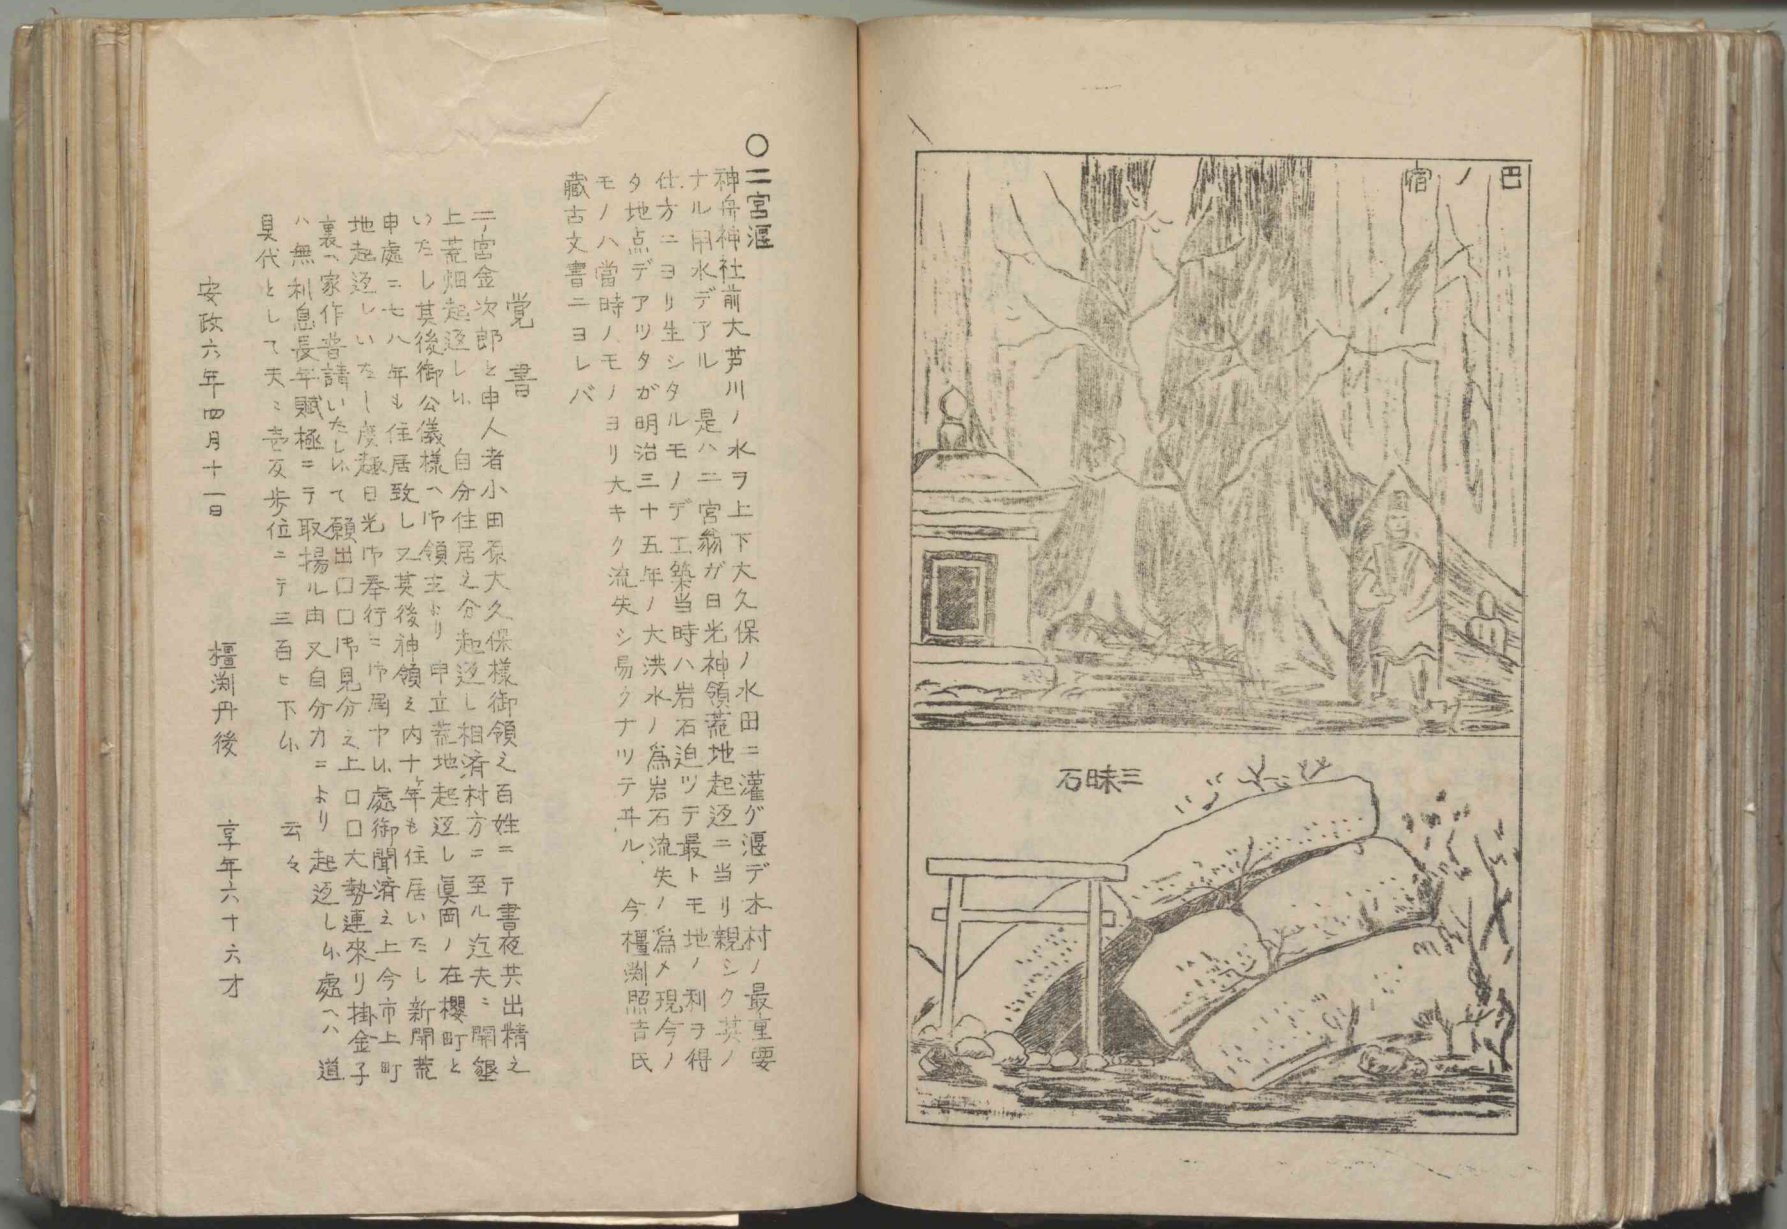 巴ノ宿
三昧石
〇二宮堰
神舟神社前大芦川ノ水ヲ上下大久保ノ水田ニ灌グ堰デ本村ノ最重要
ナル用水デアル 是ハ二宮翁ガ日光神領荒地起返ニ当リ親シク其ノ
仕方ニヨリ生シタルモノデ工築当時ハ岩石迫ツテ最トモ地ノ利ヲ得
タ地点デアツタガ明治三十五年ノ大洪水ノ為岩石流失ノ為メ現今ノ
モノハ當時ノモノヨリ大キク流失シ易クナツテヰル 今橿渕照吉氏
蔵古文書ニヨレバ
覚書
二宮金次郎と申人者小田原大久保様御領之百姓ニテ書夜共出精之
上荒畑起返し候 自分住居之分起返し相済村方ニ至ル迄夫ニ開墾
いたし其後御公儀様ヘ御領主より申立荒地起返し眞岡ノ在櫻町と
申處ニ七八年も住居致し又其後神領之内十ヶ年も住居いたし新開荒
地起返しいたし度趣日光御奉行ニ御届申候處御聞済之上今市上町
裏ヘ家作普請いたし候て願出口口御見分之上口口大勢連來り掛金子
ハ無利息長年賦極ニテ取揚ル由又自分力ニより起返し候處ヘハ道
具代として夫ニ壱反歩位ニテ三百ヒ下候 云々
安政六年四月十一日 橿渕丹後 享年六十六才